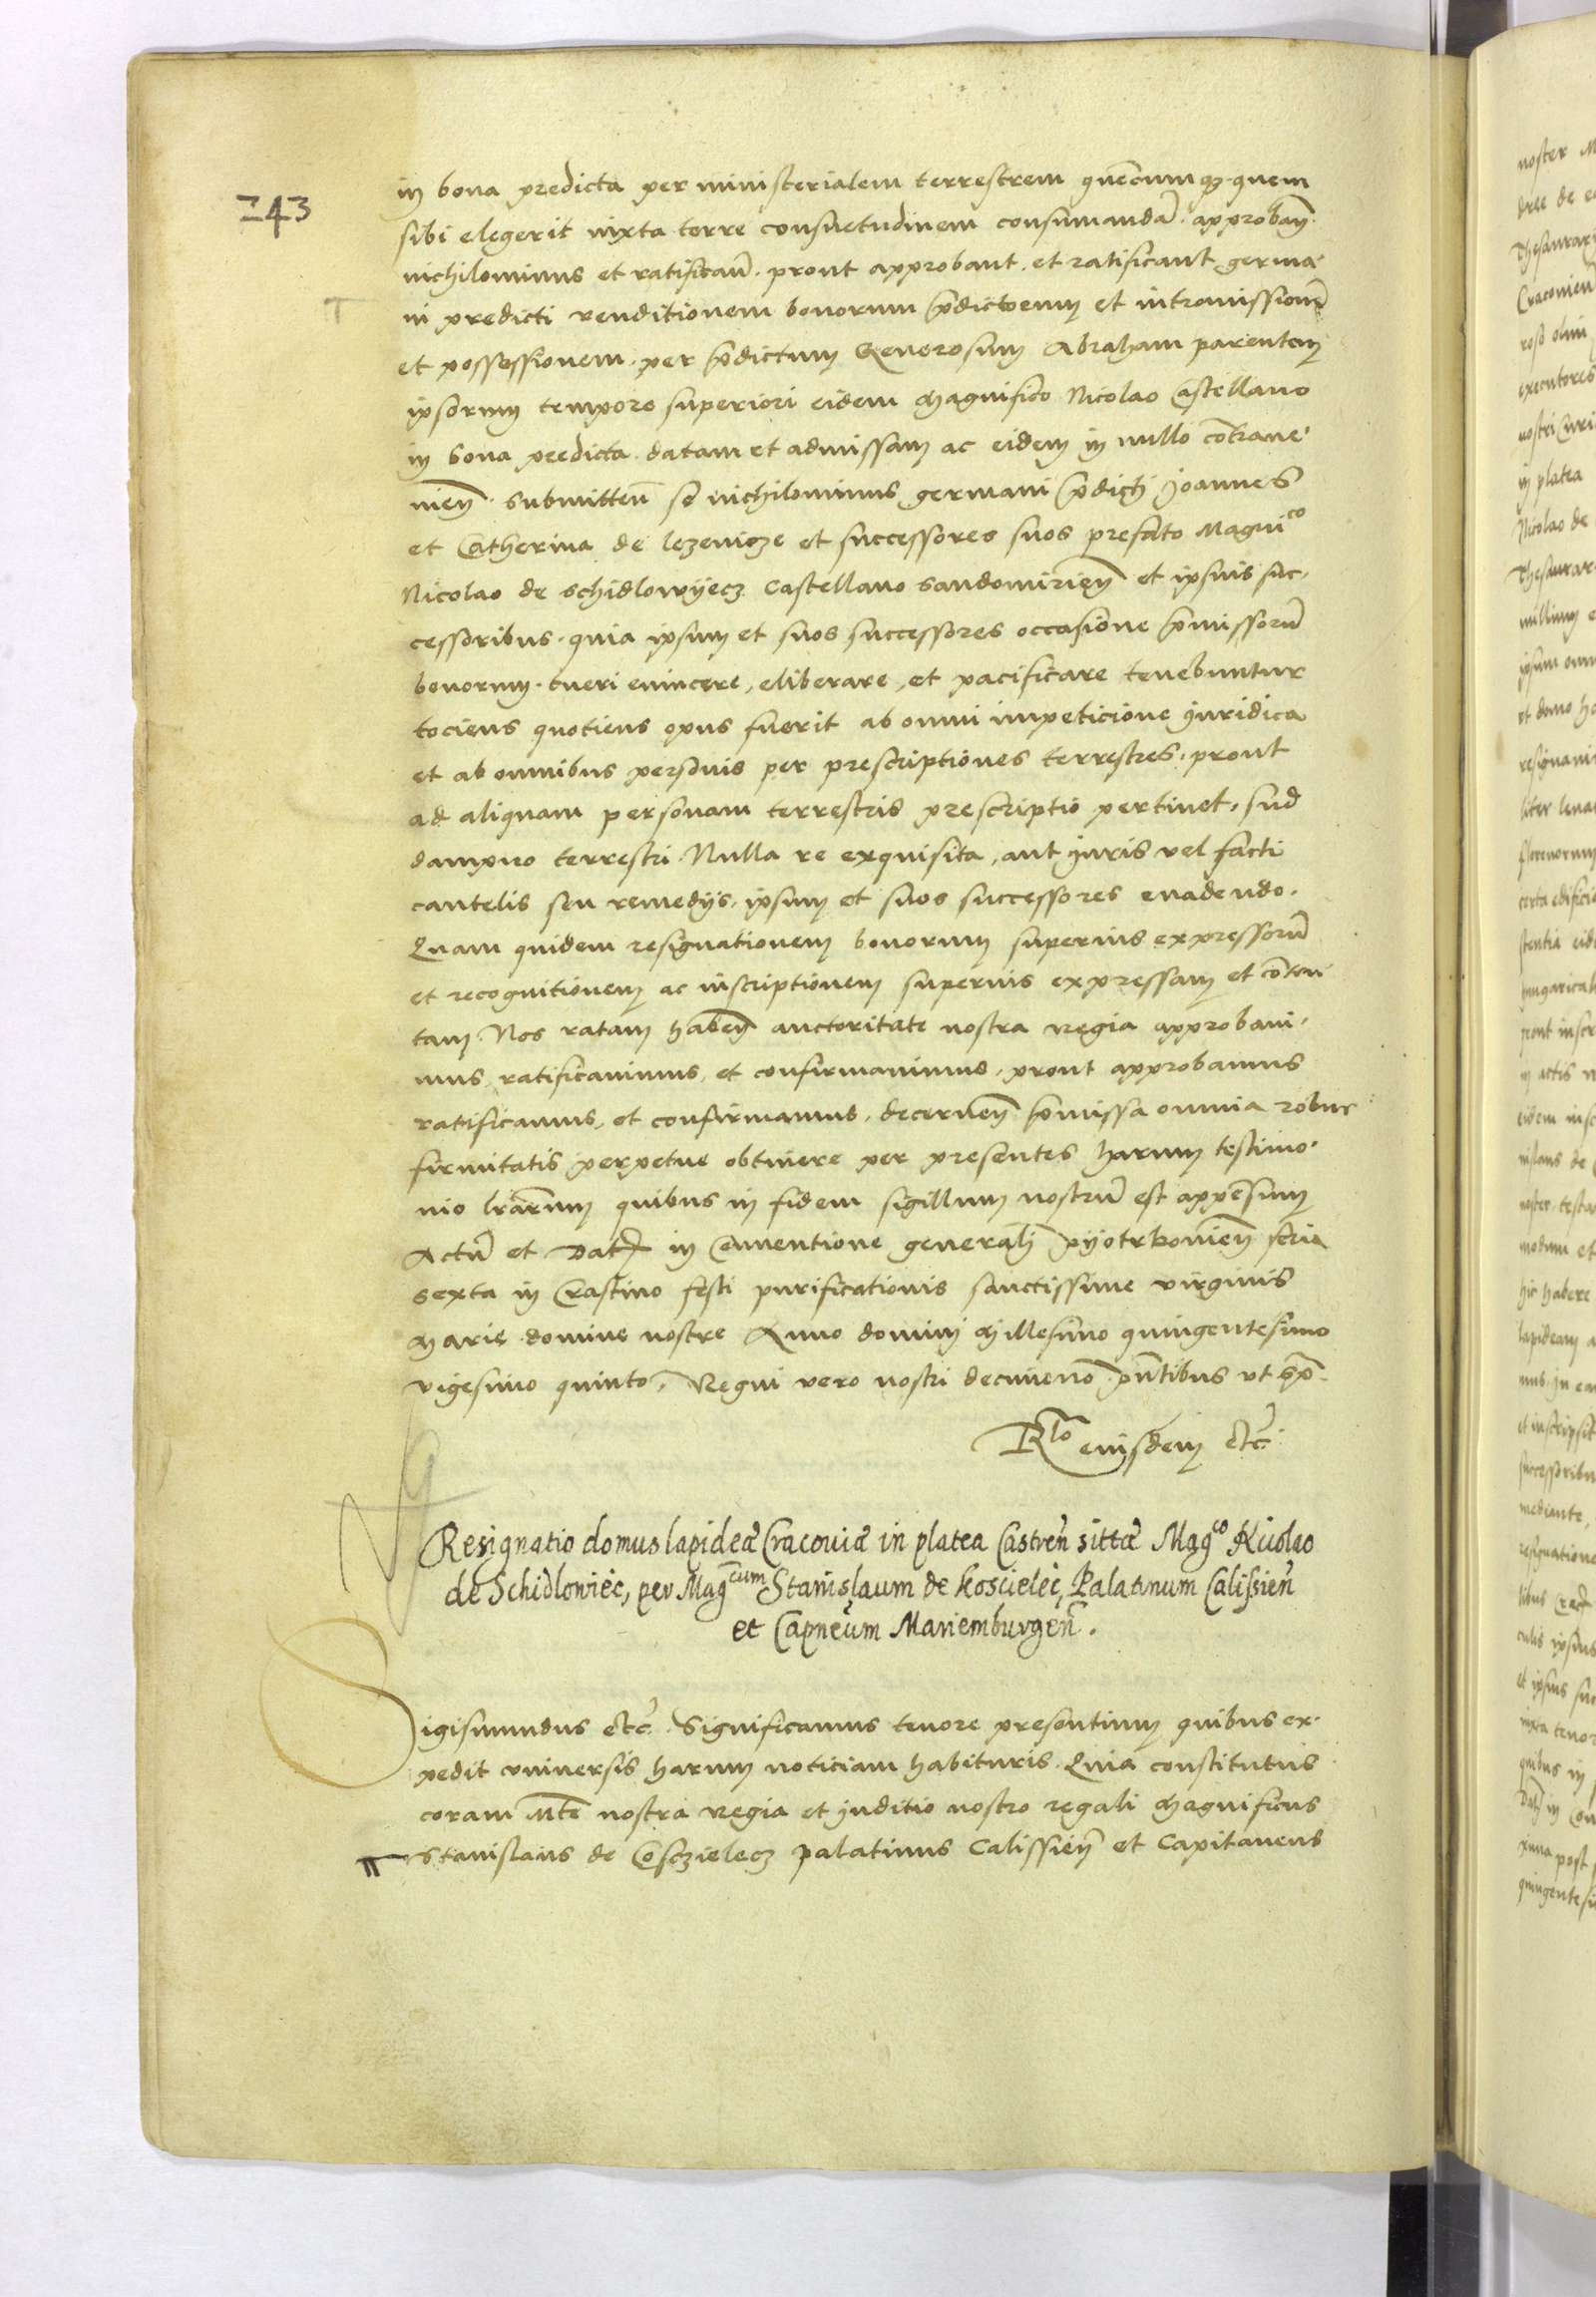 243
in bona predicta per ministerialem terrestrem quēcumq̨ quem
sibi elegerit iuxta terre consuetudinem consumandā. approbañ.
nichilominus et ratificañ. prout approbant. et ratificant germa-
ni predicti venditionem bonorum p̄dictorum et intromissionē
et possessionem. per p̄dictum Generosum Abraham parentem
ipsorum tempore superiori eidem Magnifico Nicolao Castellano
in bona predicta. datam et admissam ac eidem in nullo cōtrave-
nieñ. submitteñ se nichilominus germani p̄dicti Joannes
et Catherina de lezenicze et successores suos prefato Magnico
Nicolao de Schidlowyecz Castellano Sandomirieñ et ipsius suc-
cessoribus. quia ipsum et suos successores occasione p̄missorū
bonorum. tueri evincere, eliberare, et pacificare tenebuntur
tociens quotiens opus fuerit ab omni impeticione juridica
et ab omnibus personis per prescriptiones terrestres. prout
ad aliquam personam terrestris prescriptio pertinet. sub
dampno terrestri. Nulla re exquisita, aut juris vel facti
cautelis seu remedÿs. ipsum et suos successores evadendo.
Quam quidem resignationem bonorum superius expressorū
et recognitionem ac inscriptionem superius expressam et cōten
tam. Nos ratam habeñ auctoritate nostra regia approbavi-
mus, ratificavimus, et confirmavimus. prout approbamus
ratificamus, et confirmamus. decerneñ p̄missa omnia robur
firmitatis perpetue obtinere per presentes harum testimo-
nio lrārum quibus in fidem sigillum nostrū est appēsum
Actū et Dat in Conventione generali Pyotrkovieñ feria
sexta in Crastino festi purificationis sanctissime virginis
Marie domine nostre Anno domini Millesimo quingentesimo
vigesimo quinto, Regni vero nostri decimono p̄ntibus ut sp̄
Rlo eiusdem etc̄
Resignatio domus lapideæ Cracoviæ in platea Castreñ sittæ Magco Nicolao
de Schidloviec, per Magcum Stanislaum de Koscielec, Palatinum Calissieñ
et Capneum Mariemburgeñ.
Sigismundus etc̄. Significamus tenore presentium quibus ex-
pedit universis harum noticiam habituris. Quia constitutus
coram Mte nostra regia et juditio nostro regali Magnificus
Stanislaus de Cosczielecz palatinus Calissieñ et Capitaneus